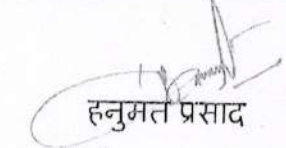 हनुमत प्रसाद